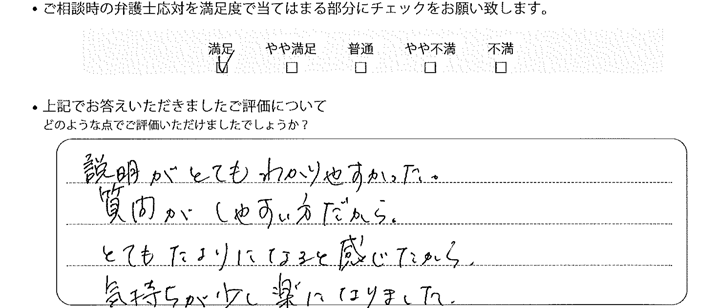 • ご相談時の弁護士応対を満足度で当てはまる部分にチェックをお願い致します。
満足 やや満足 普通 やや不満 不満
• 上記でお答えいただきましたご評価について
どのような点でご評価いただけましたでしょうか？
説明がとてもわかりやすかった。
質問がしやすい方だから。
とてもたよりになると感じたから。
気持ちが少し楽になりました。